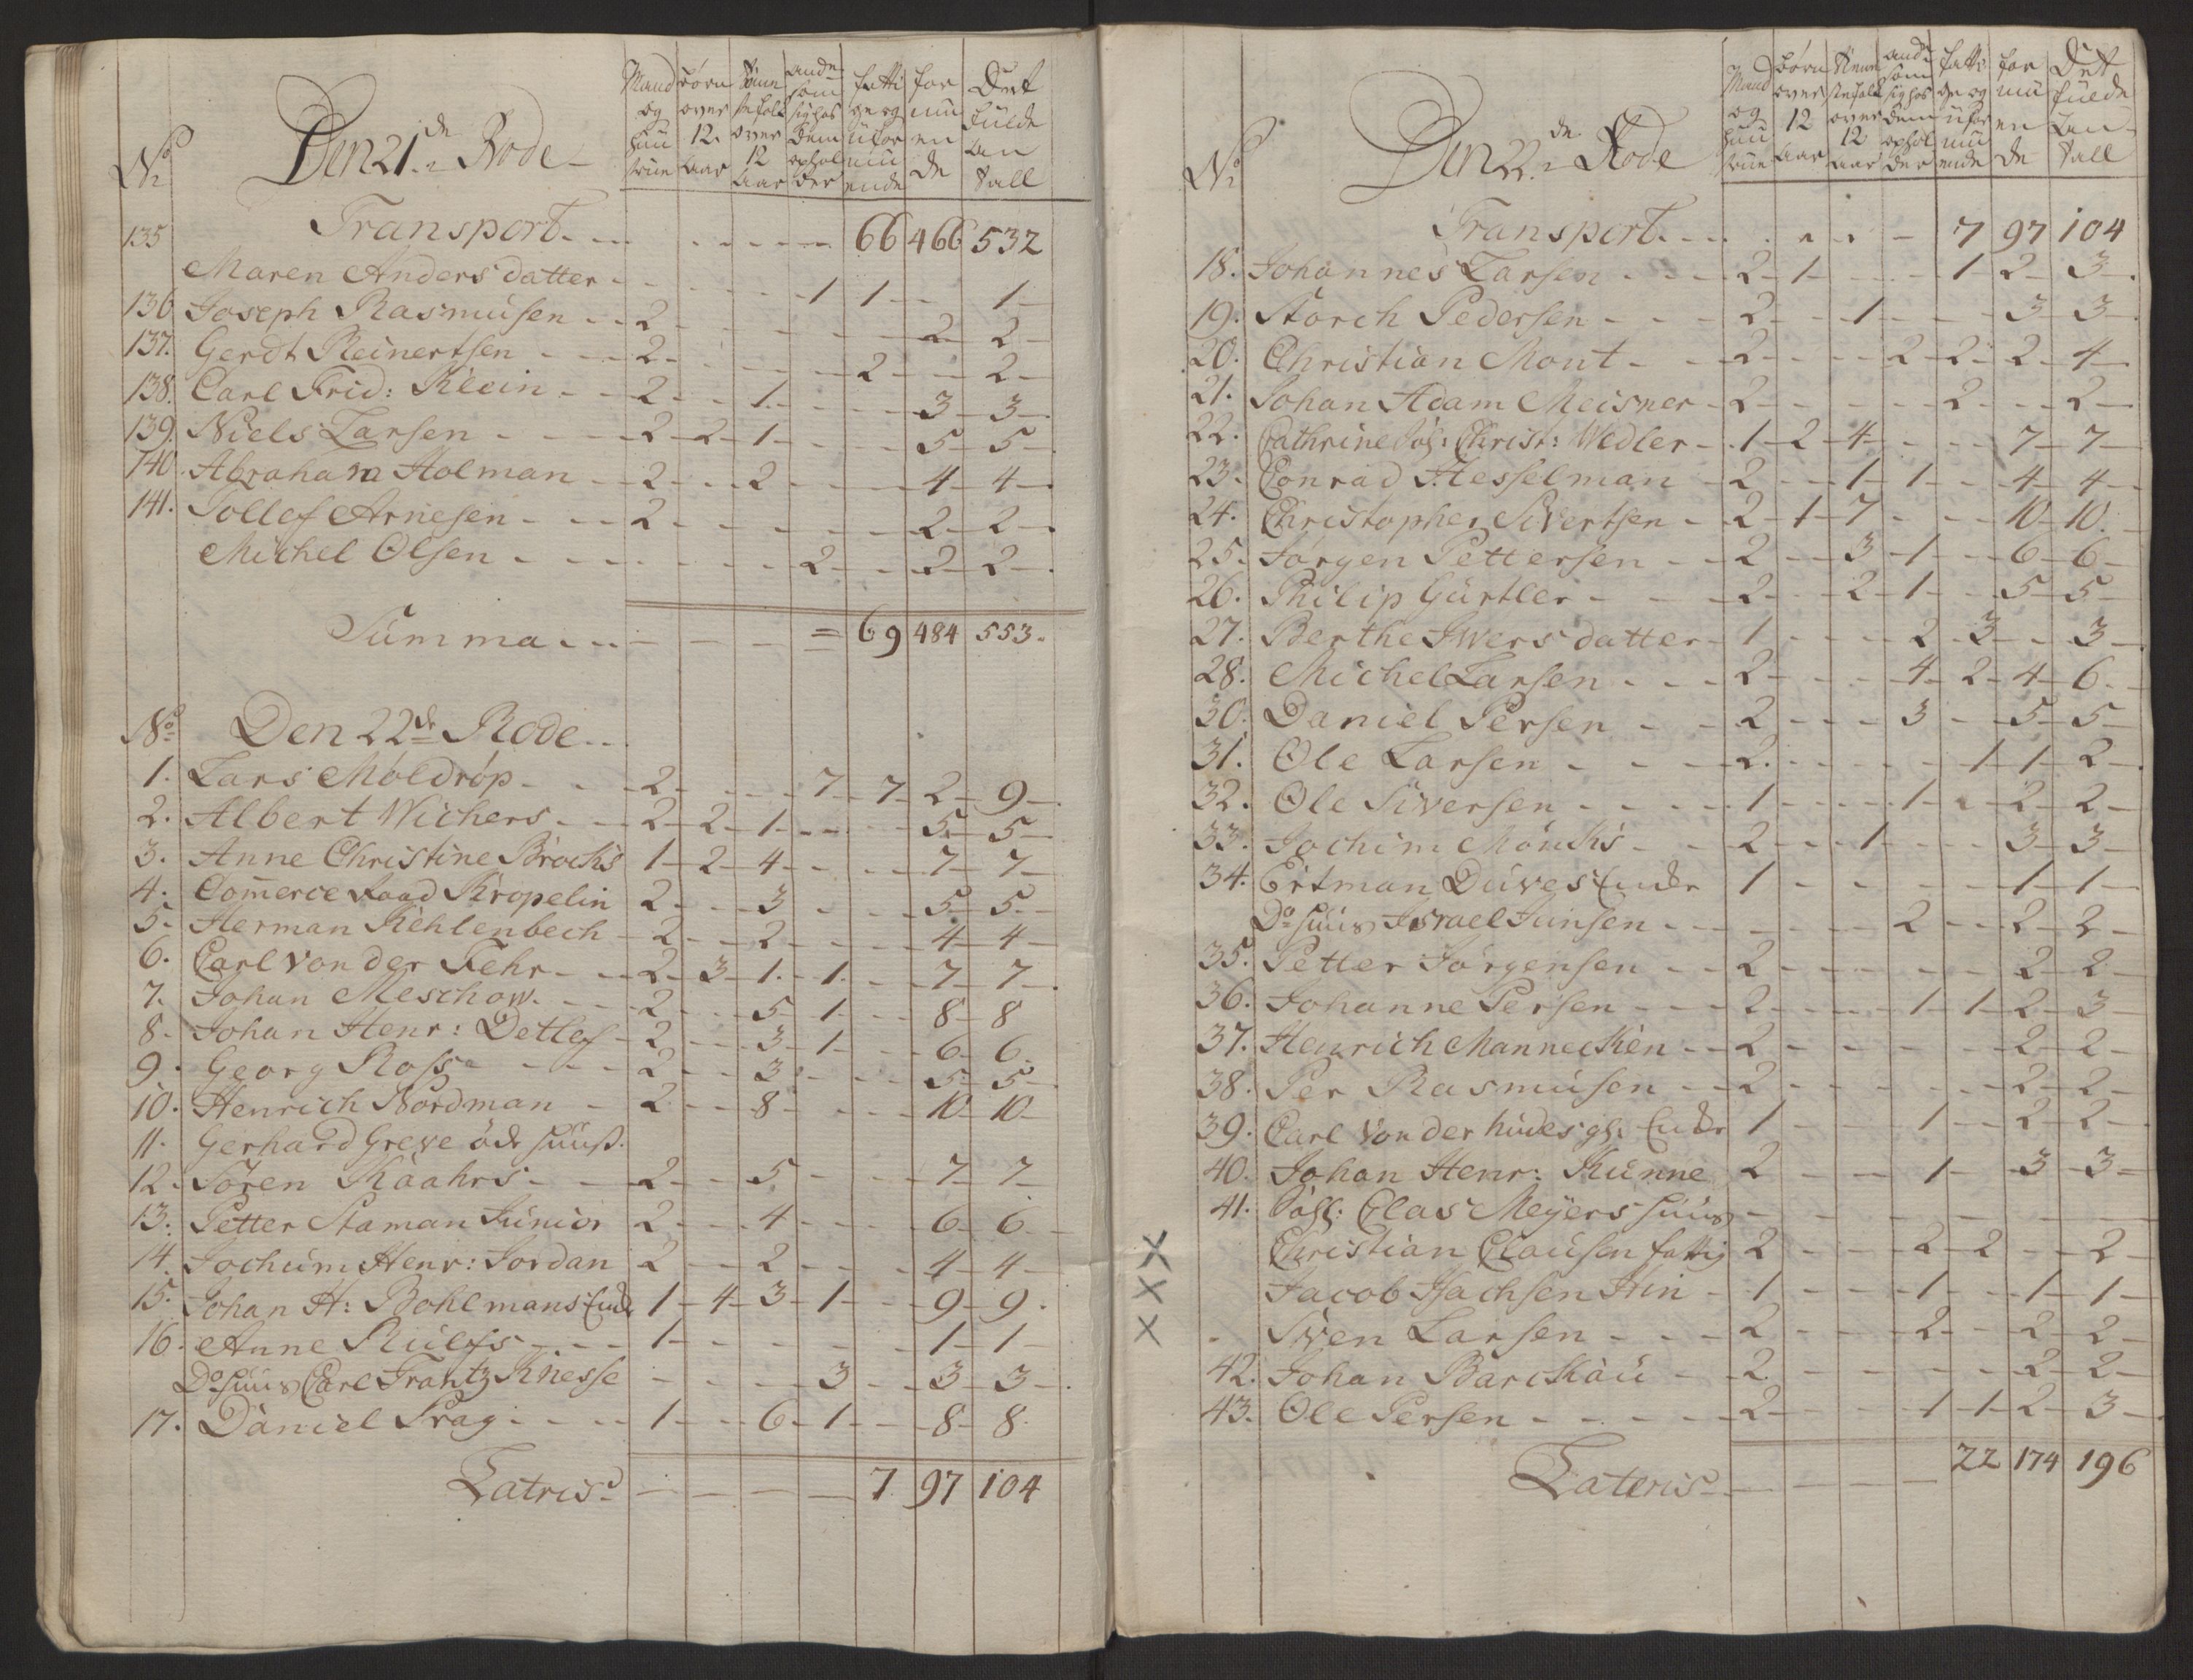 No
Den 21de Rode
Mand og Huustrue
børn over 12. aar
tiennestefolk over 12 aar
ande som sig hos dem opholder
fattige og uformuende
formuende
Det fulde Antall
135 Transport 66 466 532
Maren Anders datter 1 1 1
136 Joseph Rasmusen 2 2 2
137. Gerdt Reinertsen 2 2 2
138. Carl Frid: Klein 2 1 3 3
139. Niels Larsen 2 2 1 5 5
140. Abraham Holman 2 2 4 4
141. Tollef Arnesen 2 2 2
Michel Olsen 2 2 2
Summa 69 484 553.
No Den 22de Rode
1. Lars Moldrop 2 7 7 2 9
2. Albert Wichers 2 2 1 5 5
3. Anne Christine Brochs 1 2 4 7 7
4. Commerce Raad Kropelin 2 3 5 5
5. Herman Kehlenbech 2 2 4 4
6. Carl von der Fehr 2 3 1 1 7 7
7. Johan Meschow 2 5 1 8 8
8. Johan Henr: Detlef 2 3 1 6 6
9. Georg Ross 2 3 5 5
10. Henrich Nordman 2 8 10 10
11. Gerhard Greve öde Huus
12. Sören Kaahrs 2 5 7 7
13. Petter Staman Junior 2 4 6 6
14. Jochum Henr: Jordan 2 2 4 4
15. Johan H: Bohlmans Enke 1 4 3 1 9 9
16. Anne Rulfs 1 1 1
Do Huus Carl Frantz Knesse 3 3 3
17. Daniel Prag 1 6 1 8 8
Latris 7 97 104
No
Den 22de Rode
Mand og Huustrue
børn over 12 aar
tiennestefolk over 12 aar
ande som sig hos dem opholder
fattige og uformuende
formuende
Det fulde Antall
Transport 7 97 104
18. Johannes Larsen 2 1 1 2 3
19. Storch Pedersen 2 1 3 3
20. Christian Mont 2 2 2 2 4
21. Johan Adam Meisner 2 2 2
22. Cathrine Sal: Christ: Wedler 1 2 4 7 7
23. Conrad Hesselman 2 1 1 4 4
24. Christopher Sivertsen 2 1 7 10 10
25. Jørgen Pettersen 2 3 1 6 6
26. Philip Gürtler 2 2 1 5 5
27. Berthe Iwers datter 1 2 3 3
28. Michel Larsen 2 4 2 4 6
30. Daniel Persen 2 3 5 5
31. Ole Larsen 2 1 1 2
32. Ole Siversen 1 1 2 2
33. Jochim Mönks 2 1 3 3
34. Ertman Duves Enke 1 1 1
Do Huus Israel Junsen 2 2 2
35. Petter Jørgensen 2 2 2
36. Johanne Persen 2 1 1 2 3
37. Henrich Mannecken 2 2 2
38. Per Rasmusen 2 2 2
39. Carl von der hudes gl: Enke 1 1 2 2
40. Johan Henr: Kunne 2 1 3 3
41. Sahl: Clas Meyers Huus
X Christian Clausen fattig 2 2 2 2
X Jacob Isachsen 1 1 1 1
X Sven Larsen 2 2 2 2
42. Johan Barckau 2 2 2
43. Ole Persen 2 1 1 2 3
Lateris 22 174 196